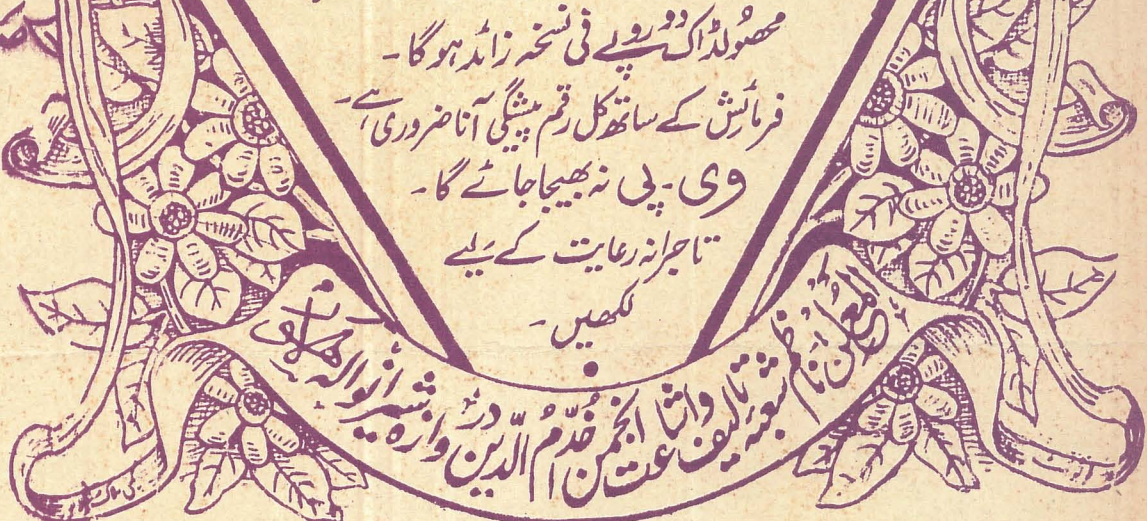 محصولڈاک دو روپے فی نسخہ زائد ہوگا۔
فرمائش کے ساتھ کل رقم پیشگی آنا ضروری ہے۔
وی۔پی نہ بھیجا جائے گا۔
تاجرانہ رعایت کے لیے
لکھیں۔
المعلن ناظم شعبۂ تالیف و اشاعت انجمن خدّام الدّین دروازہ شیرانوالہ لاہور